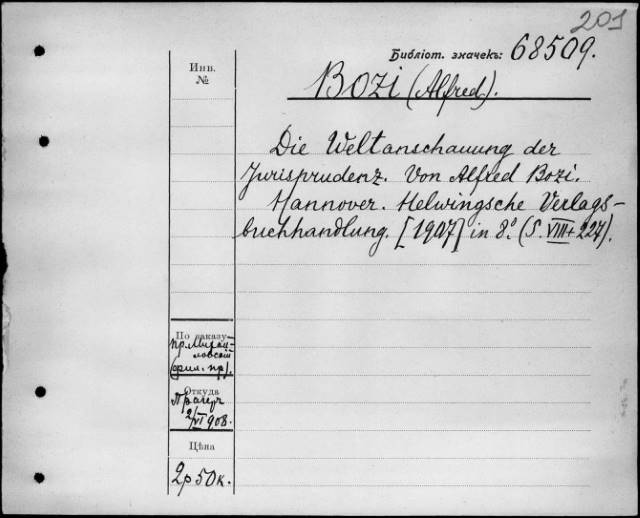 201
Библіот. значекъ: 68509.
Инв.
№
Bozi (Alfred).
Die Weltanschauung der
Jurisprudenz. Von Alfred Bozi.
Hannover. Helwingsche Verlags-
buchhandlung. [1907] in 8.° (S. VIII+227).
По заказу
пр.
ловскій
Откуда
2/VI 908.
Цѣна
2р 50к.